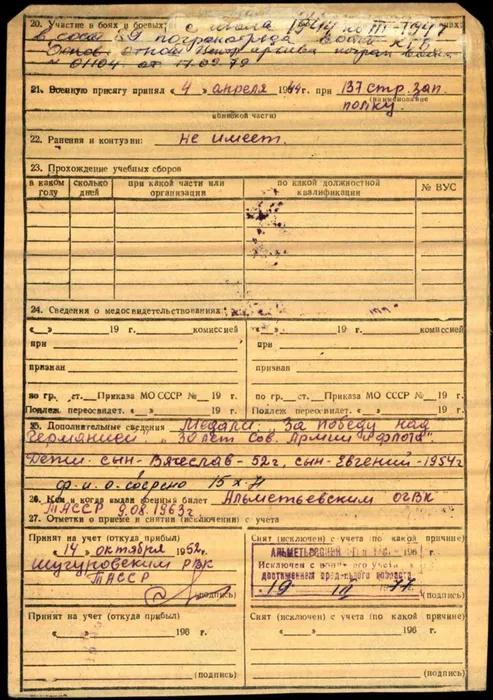 20. Участие в боях и боевых с июля 1944 по III-1947
в сост. 89 погранотряда войск КГБ
Основ. отнош. Центр архива погран войск
№ 01104 от 17.09.79
21. Военную присягу принял « 4 » апреля 1944 г. при 137 стр. зап.
полку. (наименование
воинской части)
22. Ранения и контузии: не имеет.
23. Прохождение учебных сборов
в каком году сколько дней при какой части или организации по какой должностной квалификации № ВУС
24. Сведения о медосвидетельствованиях:
«__» 19 г. комиссией «__» 19 г. комиссией
при при
признан признан
по гр. ст. Приказа МО СССР № 19 г. по гр. ст. Приказа МО СССР № 19 г.
Подлеж. переосвидет. «__» 19 г. Подлеж. переосвидет. «__» 19 г.
25. Дополнительные сведения Медали: „За победу над
Германией" „30 лет Сов. Армии и флота".
Дети: сын-Вячеслав-52г, сын-Евгений-1954г
26. Кем и когда выдан военный билет Альметьевским ОГВК
ТАССР 9.08.1963г
27. Отметки о приеме и снятии (исключении) с учета
Принят на учет (откуда прибыл) Снят (исключен) с учета (по какой причине)
« 14 » октября 1952 г. 196 г.
Шугуровским РВК АЛЬМЕТЬЕВСКИЙ
ТАССР Исключен с воинского учета
достижением предельного возраста
19 77
(подпись)
Принят на учет (откуда прибыл) Снят (исключен) с учета (по какой причине)
«__» 196 г. «__» 196 г.
(подпись) (подпись)